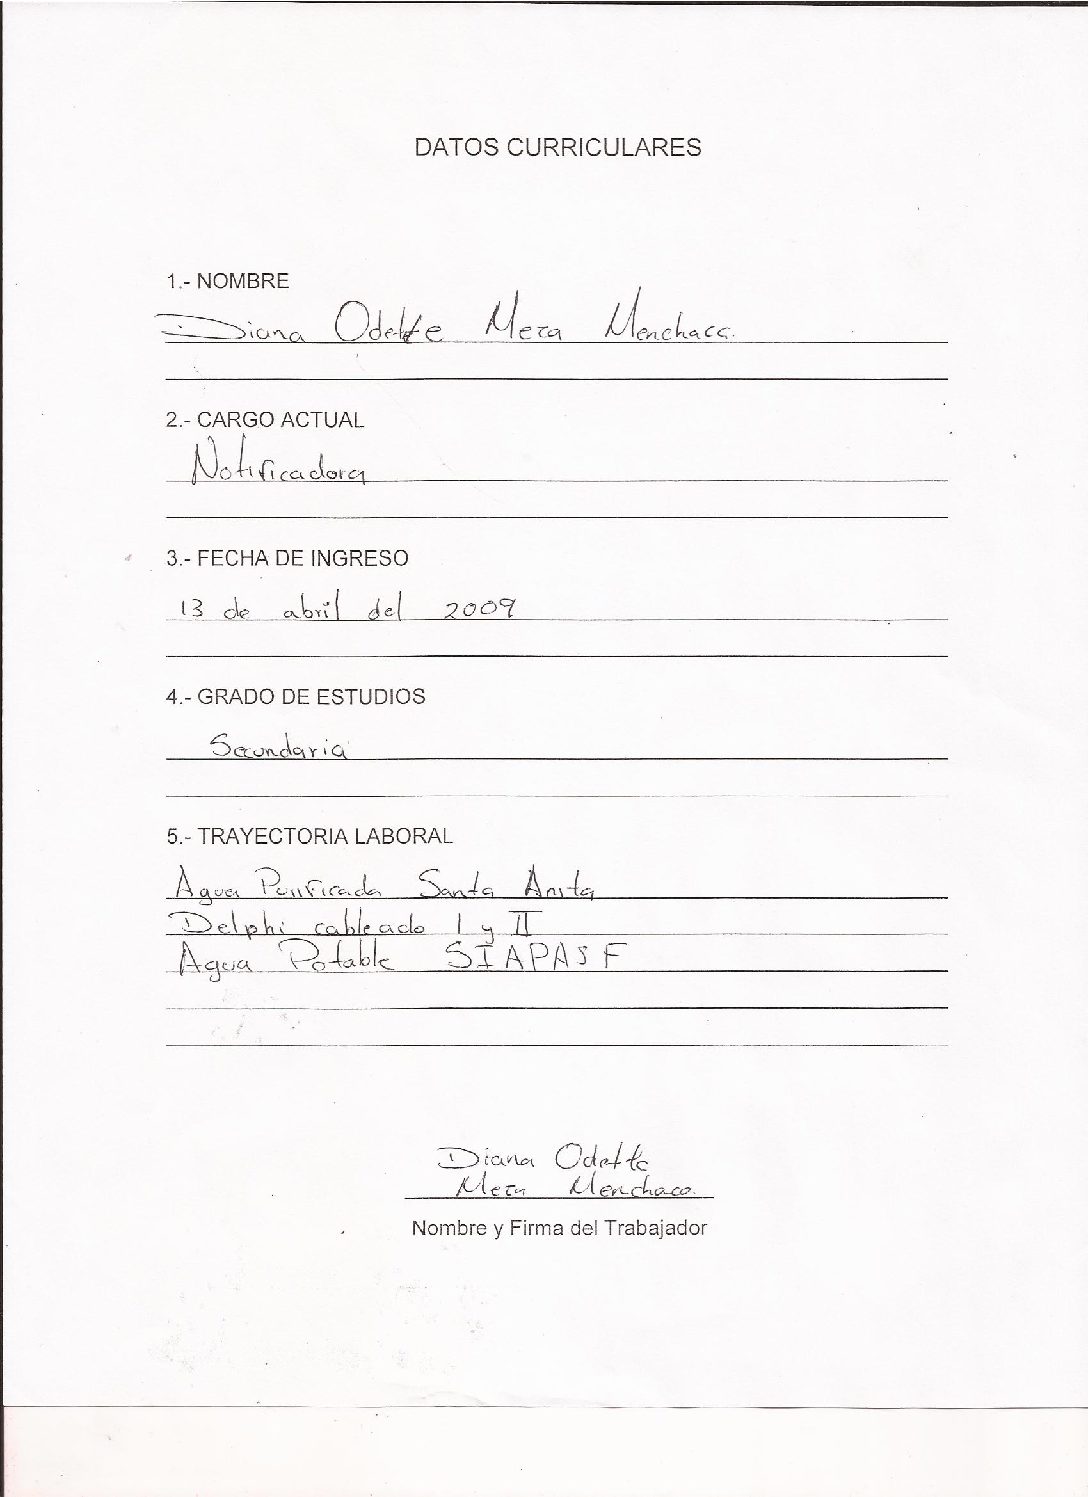 DATOS CURRICULARES
1.- NOMBRE
Diana Odette Meza Menchaca.
2.- CARGO ACTUAL
Notificadora
3.- FECHA DE INGRESO
13 de abril del 2009
4.- GRADO DE ESTUDIOS
Secundaria
5.- TRAYECTORIA LABORAL
Agua Purificada Santa Anita
Delphi cableado I y II
Agua Potable SIAPASF
Diana Odette
Meza Menchaca.
Nombre y Firma del Trabajador